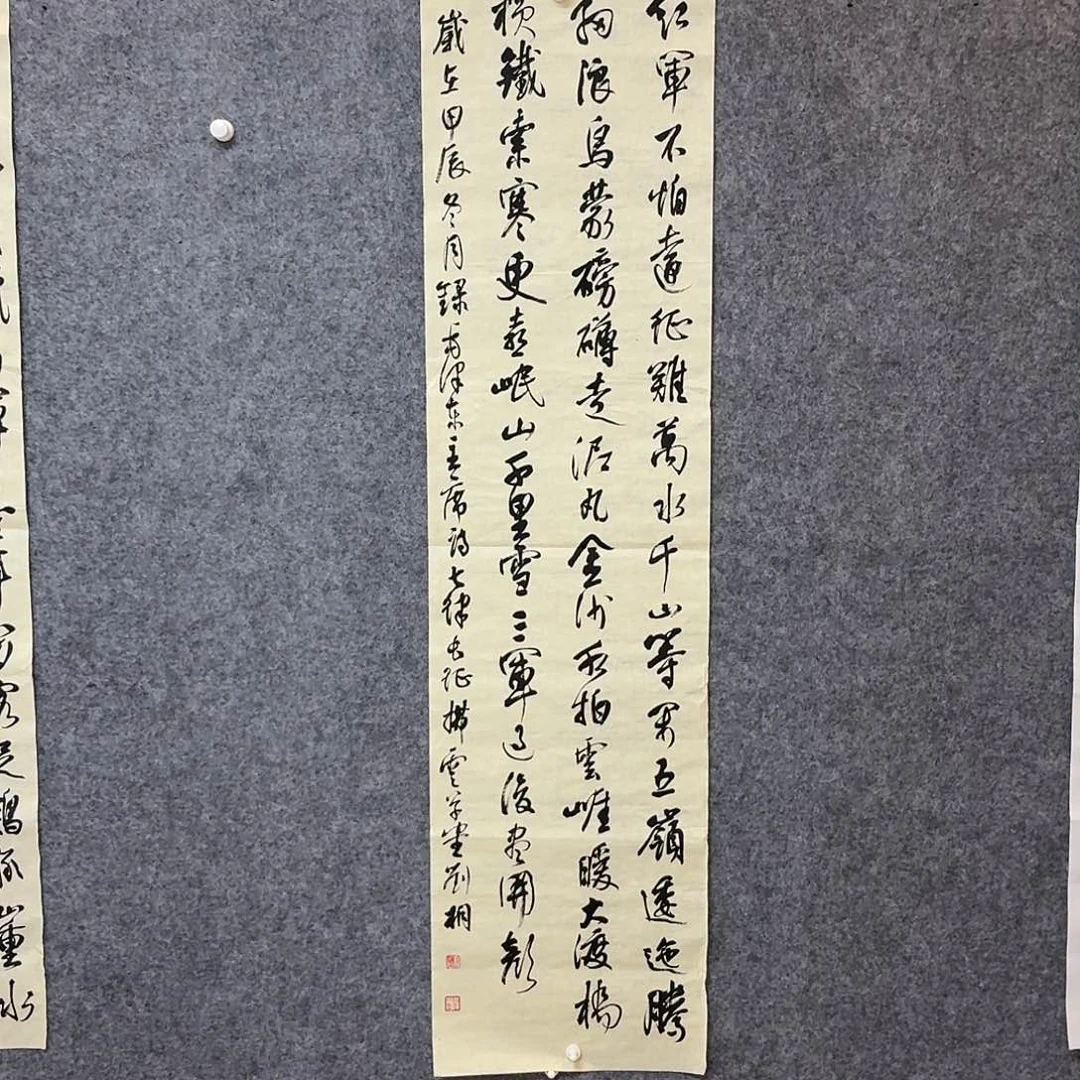 紅軍不怕遠征難萬水千山等閑五嶺逶迤騰
細浪烏蒙磅礴走泥丸金沙水拍雲崖暖大渡橋
横鐵索寒更喜岷山千里雪三軍過後盡開顔
歲在甲辰冬月録毛澤東主席詩七律長征雲草堂劉桐
水